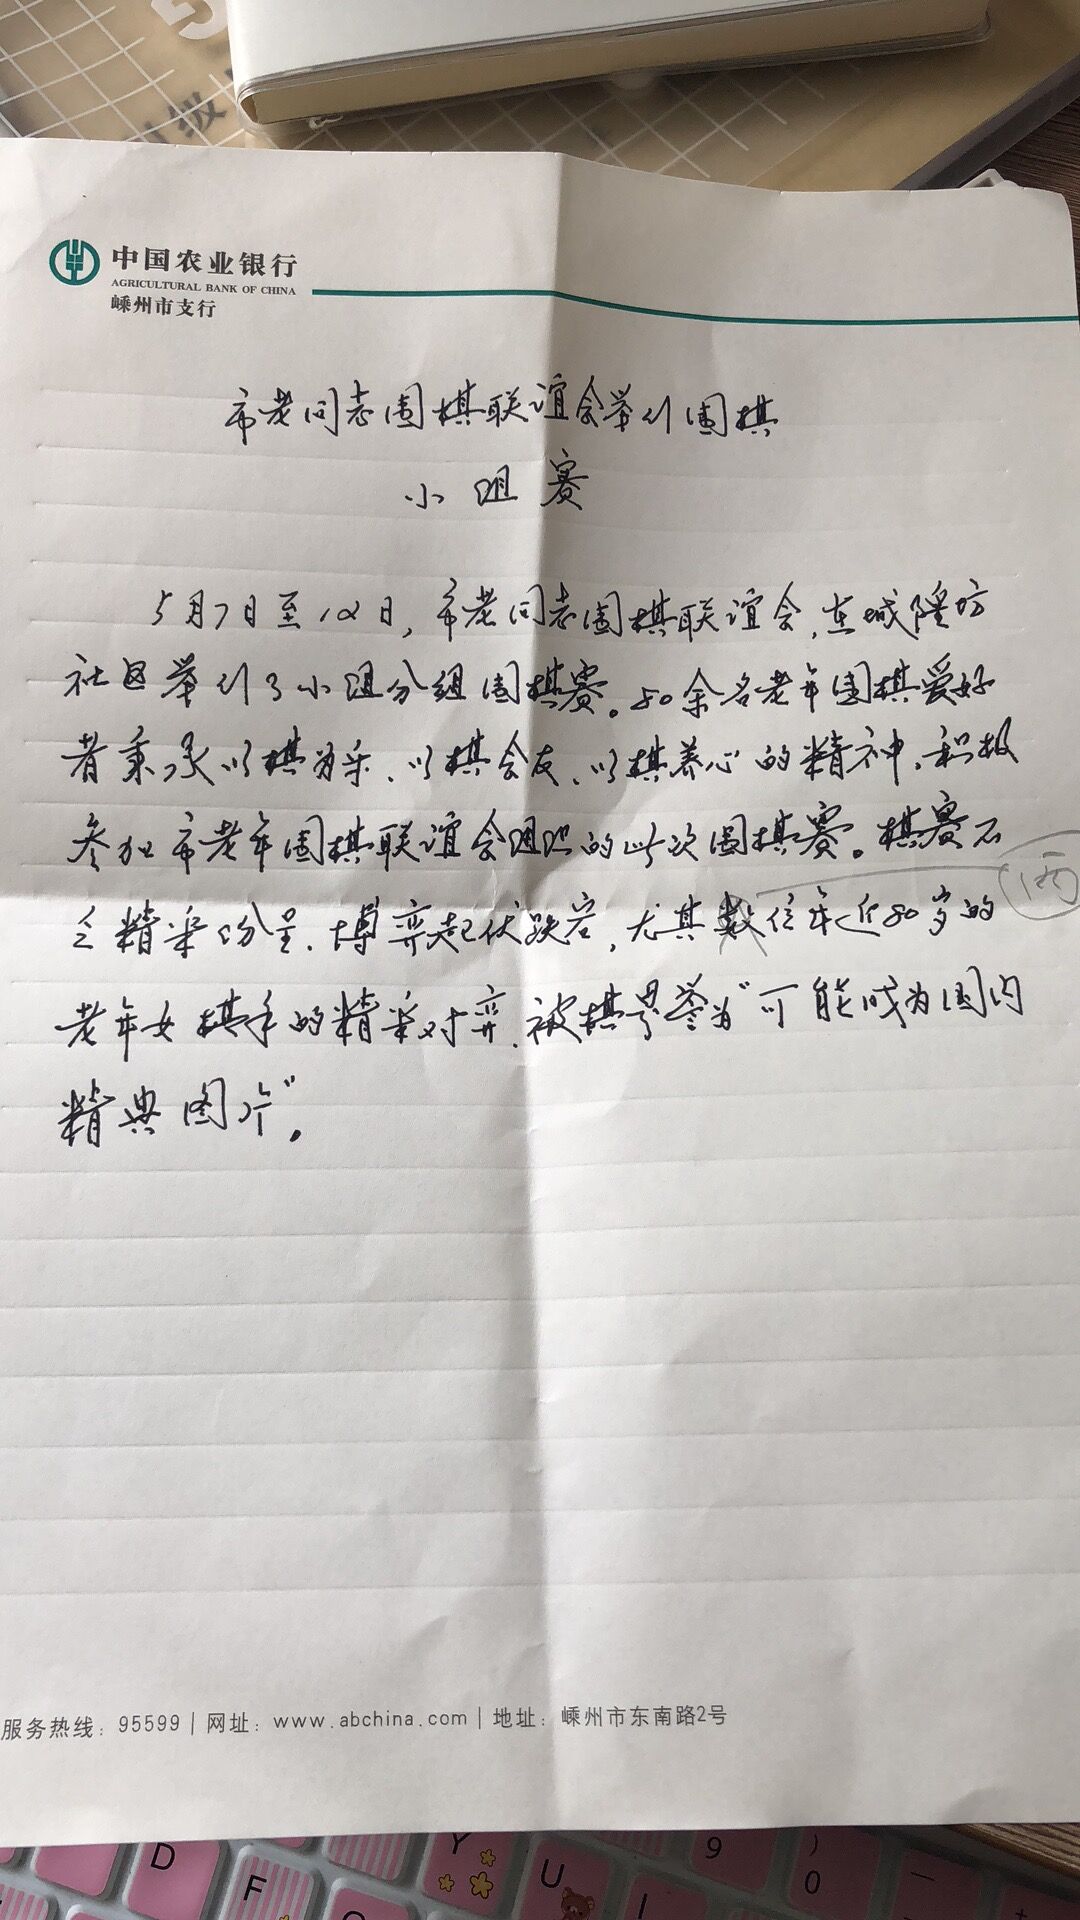 中国农业银行
AGRICULTURAL BANK OF CHINA
嵊州市支行
市老同志围棋联谊会举行围棋
小组赛
5月7日至12日,市老同志围棋联谊会,在城隍坊
社区举行了小组分组围棋赛。50余名老年围棋爱好
者秉承以棋为乐、以棋会友、以棋养心的精神,积极
参加市老年围棋联谊会组织的此次围棋赛。棋赛不
乏精采纷呈、博弈起伏跌宕,尤其数位年近80岁的
两
老年女棋手的精采对弈,被棋界誉为"可能成为国内
精典图片"。
服务热线:95599 | 网址:www.abchina.com | 地址:嵊州市东南路2号
D
F
Y
U
I
9
)
0